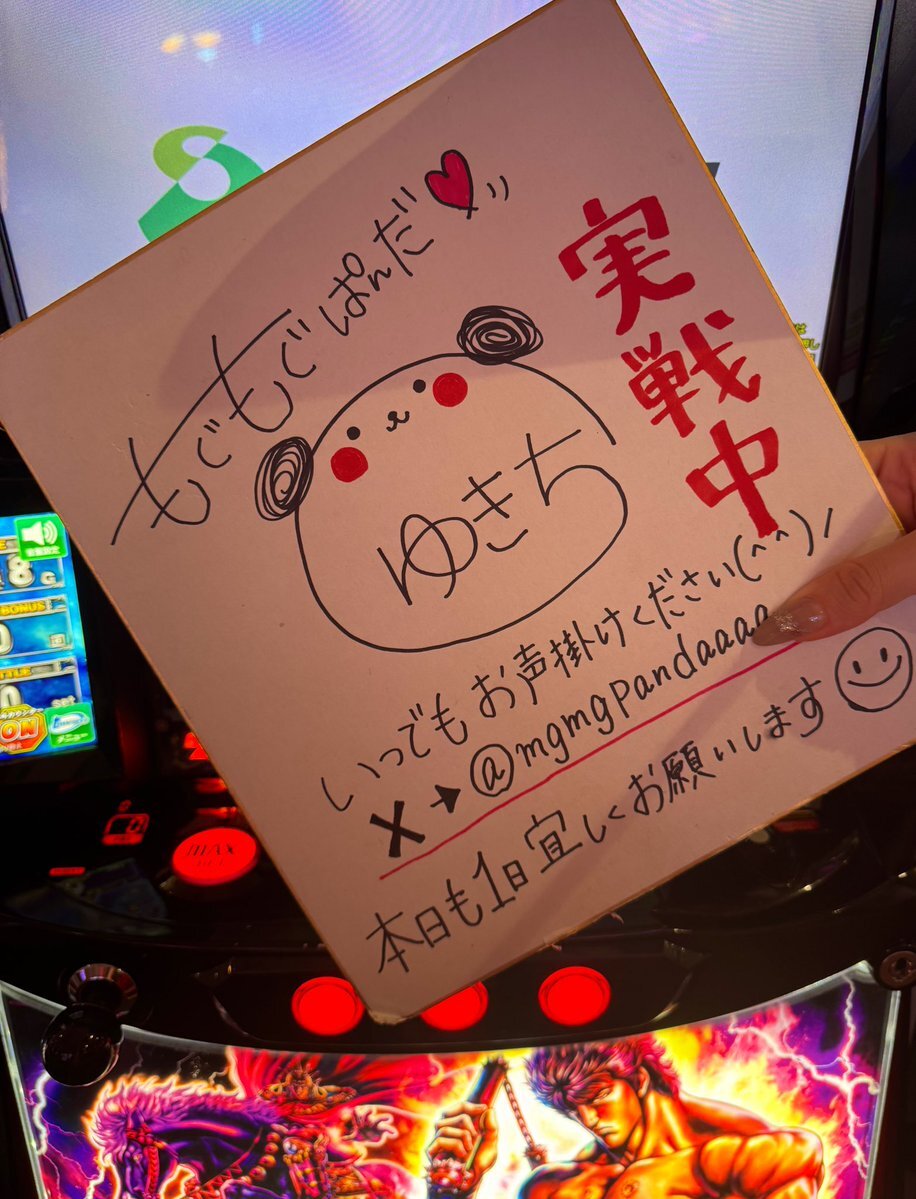 もぐもぐぱんだ
実戦中
ゆきち
いつでもお声掛けください(^^)/
X→@mgmgpandaaaa
本日も1日宜しくお願いします
8 G
BONUS
0
set
ON
メニュー
MAX